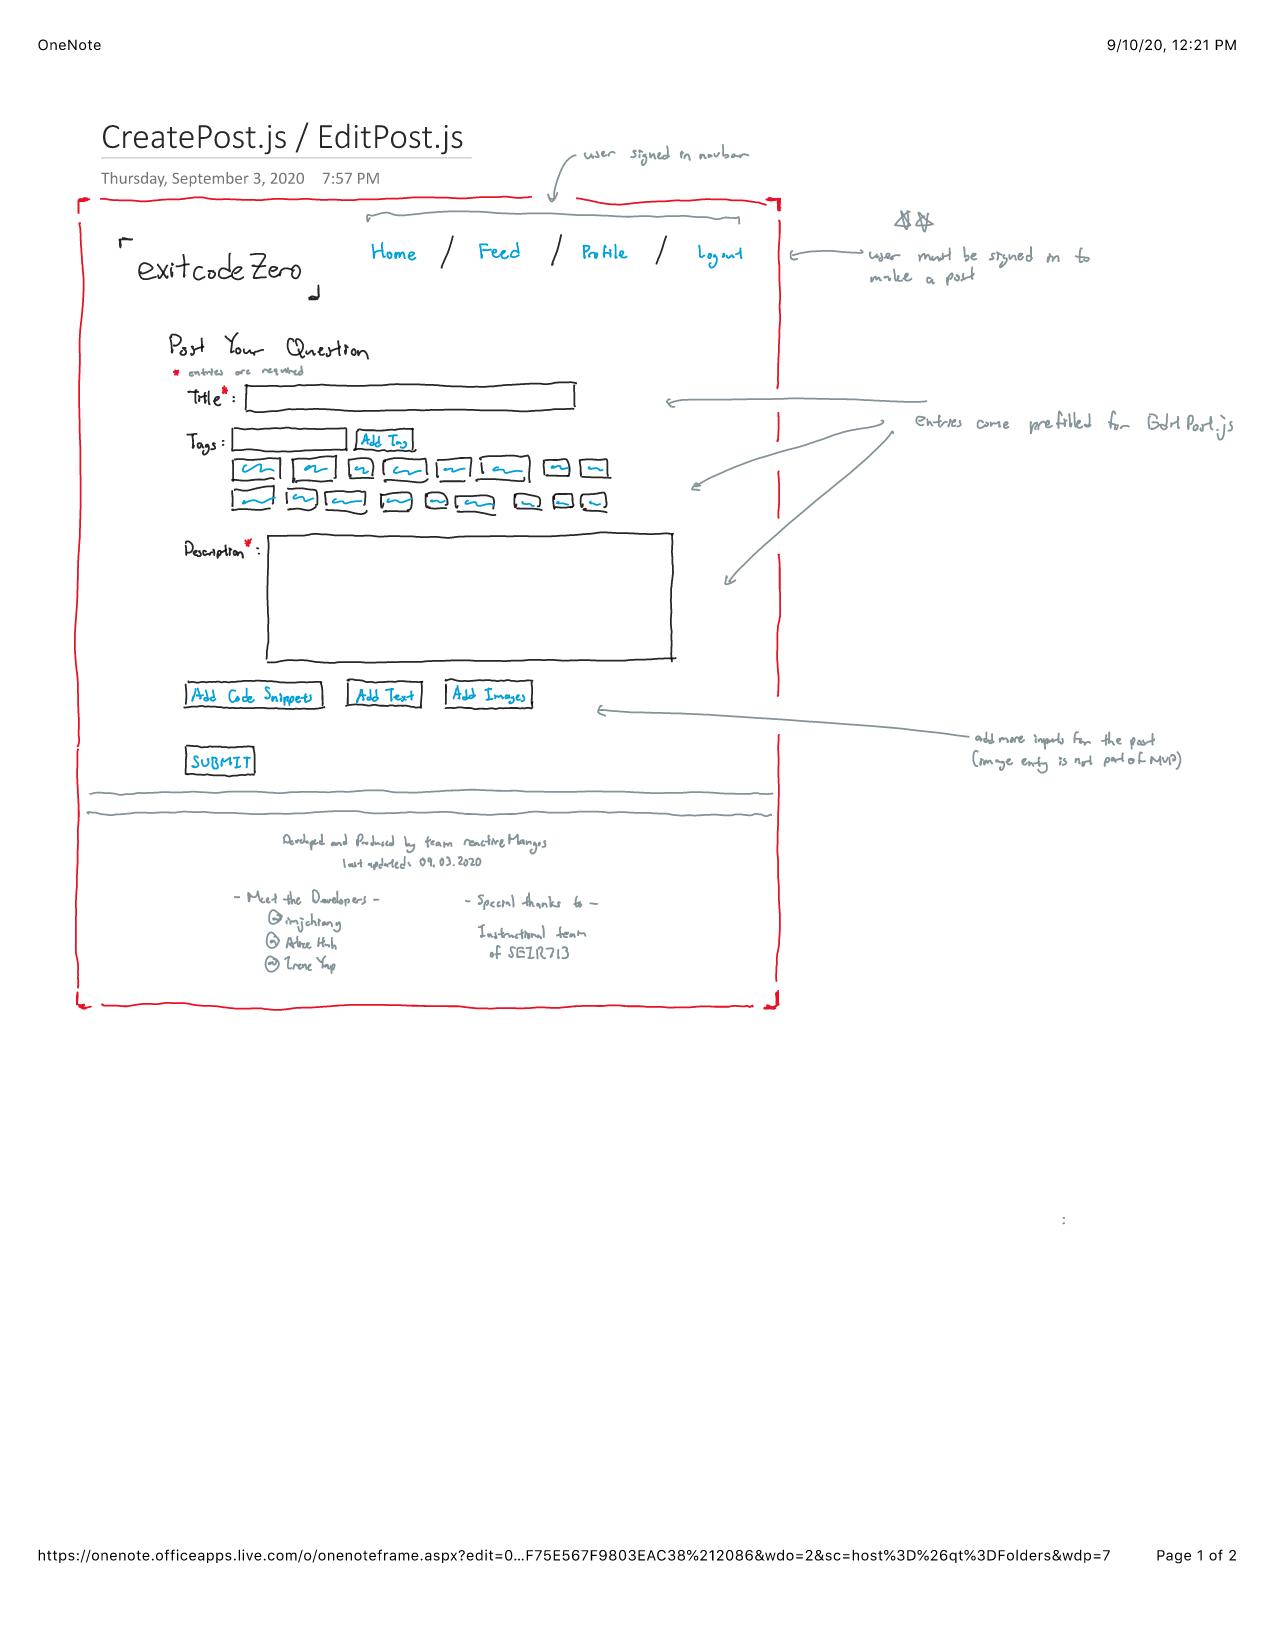 OneNote
9/10/20, 12:21 PM
CreatePost.js / EditPost.js
Thursday, September 3, 2020 7:57 PM
user signed in navbar
exitcodeZero
Home / Feed / Profile / Logout
user must be signed in to
make a post
Post Your Question
* entries are required
Title*:
entries come prefilled for EditPost.js
Tags:
Add Tag
Description*:
Add Code Snippets
Add Text
Add Images
add more inputs for the post
(image entry is not part of MVP)
SUBMIT
Developed and Produced by team reactive Mangos
last updated: 09.03.2020
- Meet the Developers -
mjchiang
- Special thanks to -
Instructional team
of SEIR713
https://onenote.officeapps.live.com/o/onenoteframe.aspx?edit=0...F75E567F9803EAC38%212086&wdo=2&sc=host%3D%26qt%3DFolders&wdp=7
Page 1 of 2